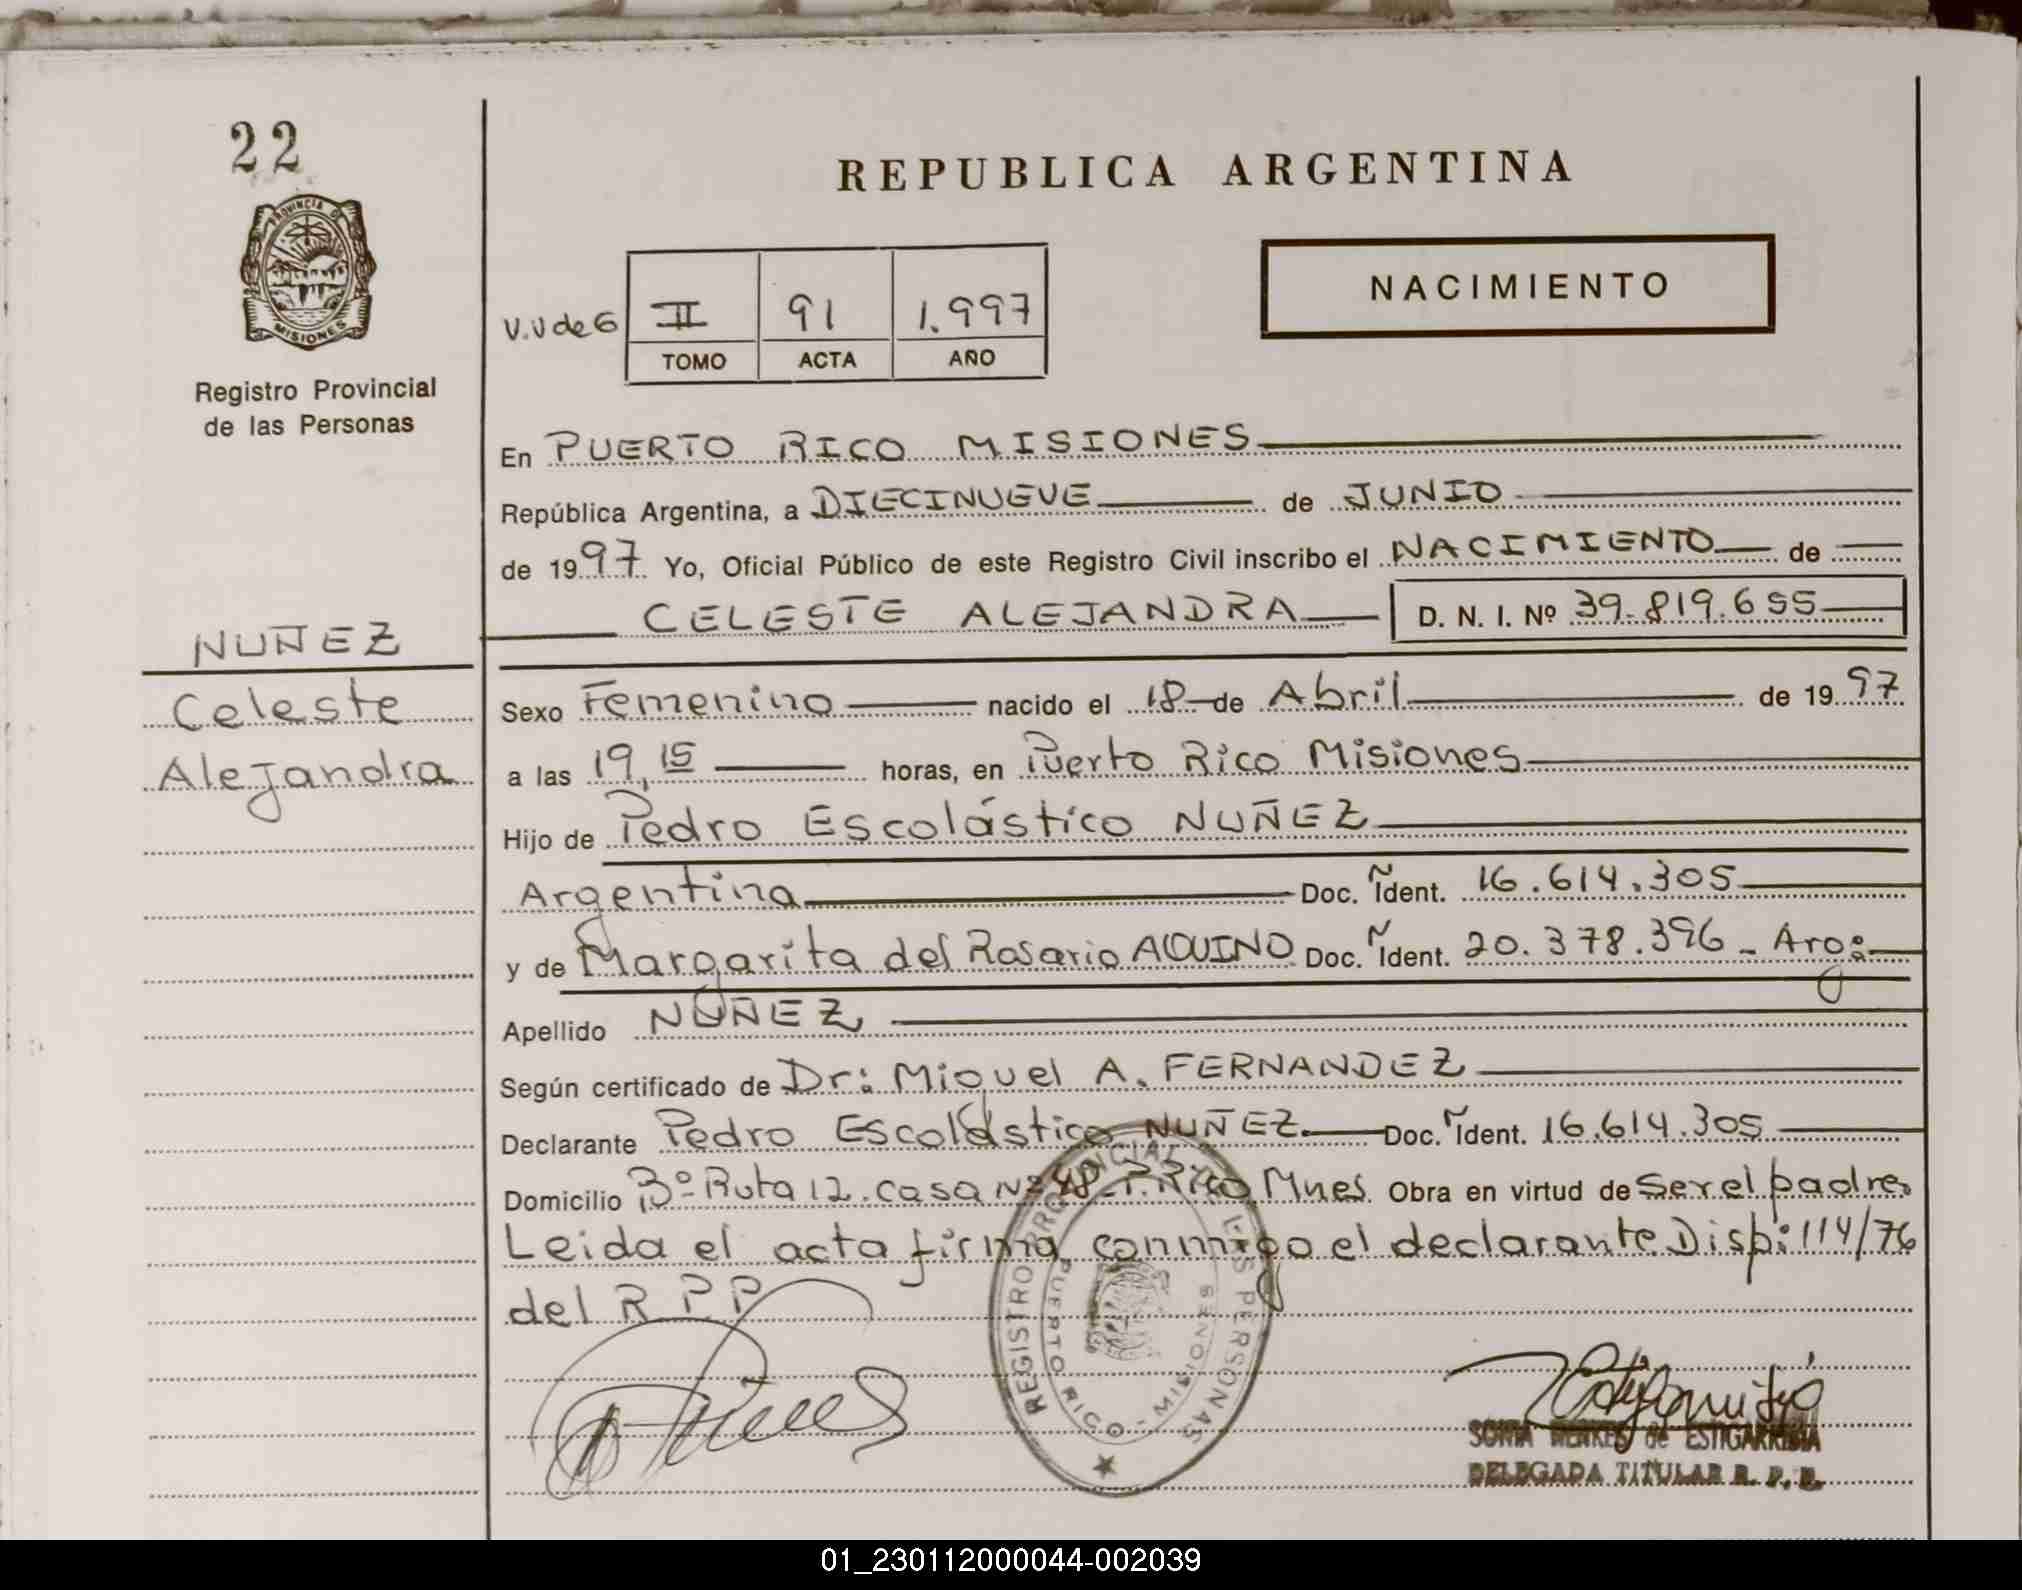 22
PROVINCIA DE
MISIONES
Registro Provincial
de las Personas
REPUBLICA ARGENTINA
NACIMIENTO
V.V de G
II 91 1.997
TOMO ACTA AÑO
En PUERTO RICO MISIONES
República Argentina, a DIECINUEVE de JUNIO
de 1997 Yo, Oficial Público de este Registro Civil inscribo el NACIMIENTO de
CELESTE ALEJANDRA D. N. I. Nº 39.819.655
NUÑEZ
Celeste
Alejandra
Sexo Femenino nacido el 18 de Abril de 1997
a las 19,15 horas, en Puerto Rico Misiones
Hijo de Pedro Escolástico NUÑEZ
Argentina Doc. Ñ Ident. 16.614.305
y de Margarita del Rosario AQUINO Doc. Ñ Ident. 20.378.396 - Arg:
Apellido NUÑEZ
Según certificado de Dr: Miguel A. FERNANDEZ
Declarante Pedro Escolástico NUÑEZ Doc. Ident. 16.614.305
Domicilio Bº Ruta 12. casa Nº 48 - P. Rico Mnes Obra en virtud de ser el padre
Leida el acta firma conmigo el declarante Disp: 114/76
del R P P
REGISTRO PROVINCIAL DE LAS PERSONAS
PUERTO RICO - MISIONES
SONIA de ESTIGARRIBIA
DELEGADA TITULAR R. P. P.
01_230112000044-002039